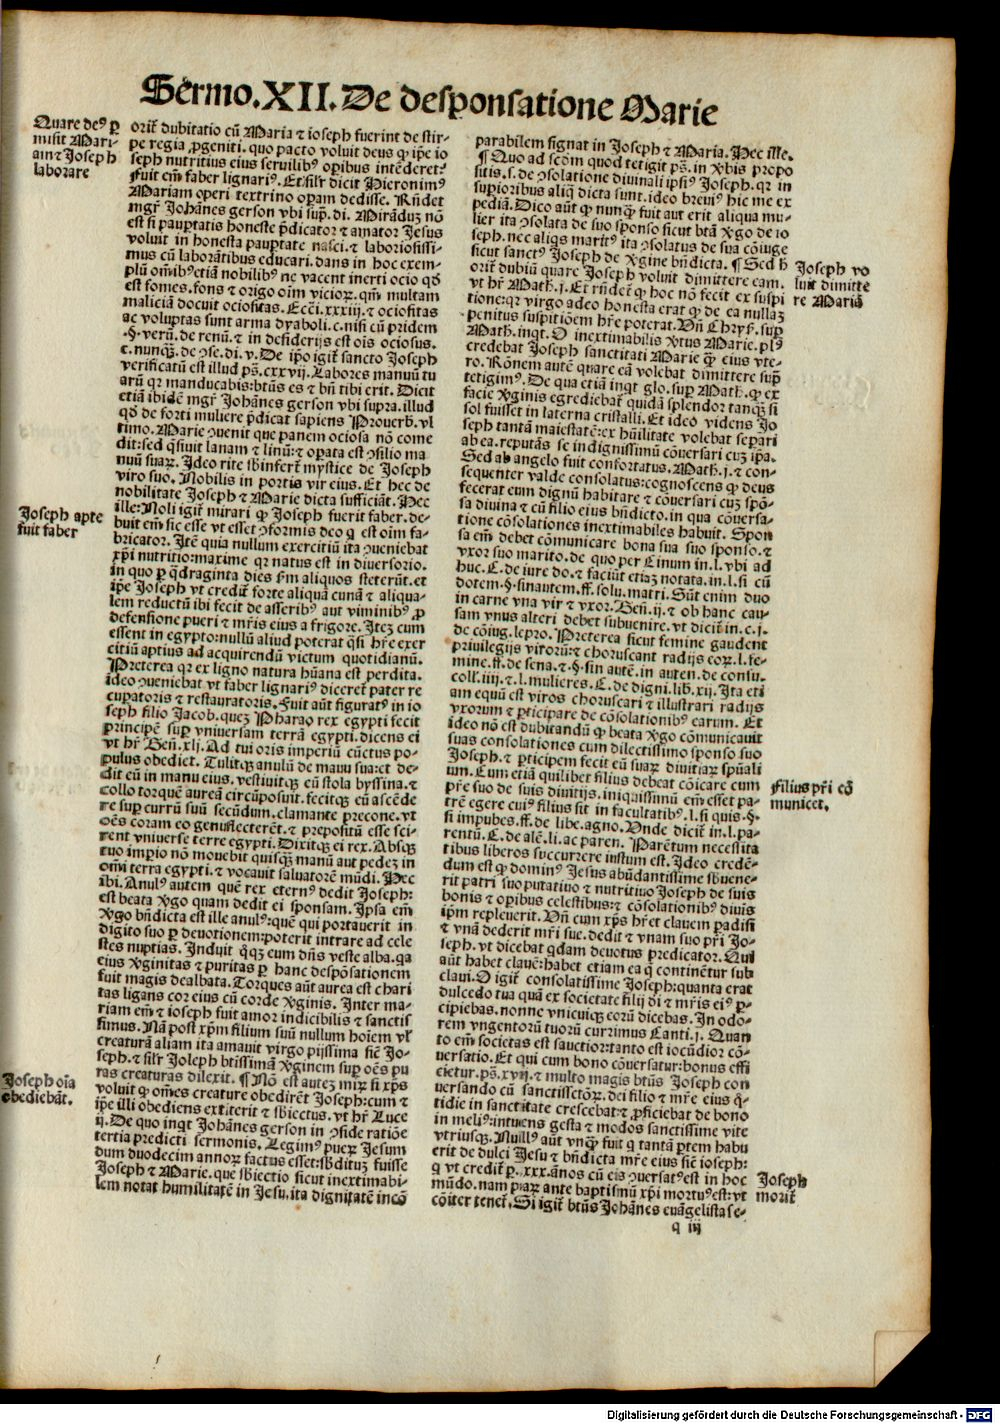 Sermo.XII.De desponsatione Marie
Quare deꝰ ꝑ
misit Mari-
am ⁊ Joseph
laborare
orit᷑ dubitatio cū Maria ⁊ ioseph fuerint de stir-
pe regia ꝓgeniti. quo pacto voluit deus ꝙ ip̄e io
seph nutritius eius seruilibꝰ opibus intēderet:
fuit em̄ faber lignariꝰ. Et sil'r dicit Hieronimꝰ
Mariam operi textrino opam dedisse. Rn̄det
mgr̄ Johānes gerson vbi sup̄. di. Mirandū nō
est si paup̄tatis honeste p̄dicator ⁊ amator Jesus
voluit in honesta paup̄tate nasci. ⁊ laboriosissi-
mus cū laborātibus educari. dans in hoc exem-
plū om̄ibꝰ etiā nobilibꝰ ne vacent inerti ocio qd̄
est fomes. fons ⁊ origo oīm vicioꝝ. qm̄ multam
maliciā docuit ociositas. Ecc̄i.xxxiij. ⁊ ociositas
ac voluptas sunt arma dyaboli. c. nisi cū pridem
.§. verū. de renū. ⁊ in desiderijs est oīs ociosus.
c. nunq̄ꝫ. de ↄse. di. v. De ip̄o igit᷑ sancto Joseph
verificatū est illud ps̄. cxxvij. Labores manuū tu
arū qr manducabis: btūs es ⁊ bn̄ tibi erit. Dicit
etiā ibidē mgr̄ Johānes gerson vbi supra. illud
qd̄ de forti muliere p̄dicat sapiens Prouerb. vl
timo. Marie ↄuenit que panem ociosa nō come
dit: sed q̄siuit lanam ⁊ linū: ⁊ opata est ↄsilio ma
nuū suaꝝ. Ideo rite sb̄infert᷑ mystice de Joseph
viro suo. Nobilis in portis vir eius. Et hec de
nobilitate Joseph ⁊ Marie dicta sufficiāt. Hec
Joseph apte
fuit faber
ille: Noli igit᷑ mirari ꝙ Joseph fuerit faber. de-
buit em̄ sic esse vt esset ↄformis deo q̄ est oīm fa-
bricator. Itē quia nullum exercitiū ita ↄueniebat
xp̄i nutritio: maxime qr natus est in diuersorio.
in quo ꝑ q̄draginta dies fm aliquos steterūt. et
ip̄e Joseph vt credit᷑ forte aliquā cunā ⁊ aliqua-
lem reductū ibi fecit de asseribꝰ aut viminibꝰ ꝓ
defensione pueri ⁊ mr̄is eius a frigore. Iteꝫ cum
essent in egypto: nullū aliud poterat q̄si hr̄e exer
citiū aptius ad acquirendū victum quotidianū.
Preterea qr ex ligno natura hūana est perdita.
ideo ↄueniebat vt faber lignariꝰ diceret᷑ pater re
cuꝑatoris ⁊ restauratoris. Fuit aūt figuratꝰ in io
seph filio Jacob. queꝫ Pharao rex egypti fecit
principē sup̄ vniuersam terrā egypti. dicens ei
vt hr̄ Gen̄. xlj. Ad tui oris imperiū cūctus po-
pulus obediet. Tulitqꝫ anulū de manu sua: et de-
dit eū in manu eius. vestiuitqꝫ eū stola byssina. ⁊
collo torquē aureā circūposuit. fecitqꝫ eū ascēde
re sup̄ currū suū secūdum. clamante precone. vt
oēs coram eo genuflecterēt. ⁊ prepositū esse sci-
rent vniuerse terre egypti. Dixitqꝫ ei rex. Absqꝫ
tuo imp̄io nō mouebit quisqꝫ manū aut pedeꝫ in
om̄i terra egypti. ⁊ vocauit saluatorē mūdi. Hec
ibi. Anulꝰ autem quē rex eternꝰ dedit Joseph:
est beata v̄go quam dedit ei sponsam. Ipsa em̄
v̄go bn̄dicta est ille anulꝰ: quē qui portauerit in
digito suo ꝑ deuotionem: poterit intrare ad cele
stes nuptias. Induit q̄qꝫ eum dn̄s veste alba. qa
eius v̄ginitas ⁊ puritas ꝑ hanc despōsationem
fuit magis dealbata. Torques aūt aurea est chari
tas ligans cor eius cū corde v̄ginis. Inter ma-
riam em̄ ⁊ ioseph fuit amor indicibilis ⁊ sanctis
simus. Nā post xp̄m filium suū nullum hoīem vl'
creaturā aliam ita amauit virgo pijssima sic̄ Jo-
seph. ⁊ sil'r Joseph btissimā v̄ginem sup̄ oēs pu
Joseph oīa
obediebāt.
ras creaturas dilexit. ¶ Nō est auteꝫ miꝝ si xp̄s
voluit ꝙ om̄es creature obedirēt Joseph: cum ⁊
ip̄e illi obediens extiterit ⁊ sb̄iectus. vt hr̄ Luce
ij. De quo inqt Johānes gerson in ↄside ratiōe
tertia predicti sermonis. Legimꝰ pueꝝ Jesum
dum duodecim annoꝝ factus esset: sb̄dituꝫ fuisse
Joseph ⁊ Marie. que sb̄iectio sicut inextimabi-
lem notat humilitatē in Jesu. ita dignitatē incō
parabilem signat in Joseph ⁊ Maria. Hec ille.
¶ Quo ad scd̄m quod tetigit ps̄. in v̄bis propo
sitis. s. de ↄsolatione diuinali ipsiꝰ Joseph. qr in
sup̄ioribus aliq̄ dicta sunt. ideo breuiꝰ hic me ex
pediā. Dico aūt ꝙ nunq̄ fuit aut erit aliqua mu-
lier ita ↄsolata de suo sponso sicut btā v̄go de io
seph. nec aliqs maritꝰ ita ↄsolatus de sua cōiuge
sicut sanctꝰ Joseph de v̄gine bn̄dicta. ¶ Sed h̄
Joseph vo
luit dimitte
re Mariā
orit᷑ dubiū quare Joseph voluit dimittere eam.
vt hr̄ Math. j. Et rn̄det᷑ ꝙ hoc nō fecit ex suspi
tione: qr virgo adeo honesta erat ꝙ de ea nullaꝫ
penitus suspitiōem hr̄e poterat. Vn̄ Chrys. sup̄
Math. inqt. O inextimabilis v̄tus Marie. plꝰ
credebat Joseph sanctitati Marie q̄ꝫ eius vte-
ro. Rōnem autē quare eā volebat dimittere sup̄
tetigimꝰ. De qua etiā inqt glo. sup̄ Math. ꝙ ex
facie v̄ginis egrediebat᷑ quidā splendor tanqꝫ si
sol fuisset in laterna cristalli. Et ideo videns Jo
seph tantā maiestatē: ex hūilitate volebat separi
ab ea. reputās se indignissimū cōuersari cuꝫ ip̄a.
Sed ab angelo fuit confortatus. Math. j. ⁊ con-
sequenter valde consolatus: cognoscens ꝙ deus
fecerat eum dignū habitare ⁊ cōuersari cuꝫ spō-
sa diuina ⁊ cū filio eius bn̄dicto. in qua cōuersa-
tione cōsolationes inextimabiles habuit. Spon
sa em̄ debet cōmunicare bona sua suo sponso. ⁊
vxor suo marito. de quo per Cinum in. l. vbi ad
huc. C. de iure do. ⁊ faciūt etiaꝫ notata. in. l. si cū
dotem. §. sin autem. ff. solu. matri. Sūt enim duo
in carne vna vir ⁊ vxor. Gen̄. ij. ⁊ ob hanc cau-
sam vnus alteri debet subuenire. vt dicit᷑ in. c. j.
de cōiug. lepro. Preterea sicut femine gaudent
priuilegijs viroꝝ: ⁊ choruscant radijs eoꝝ. l. fe-
mine. ff. de sena. ⁊. §. sin autē. in auten. de consu.
coll. iiij. ⁊. l. mulieres. C. de digni. lib. xij. Ita eti
am equū est viros choruscari ⁊ illustrari radijs
vxorum ⁊ ꝑticipare de cōsolationibꝰ earum. Et
ideo nō est dubitandū ꝙ beata v̄go cōmunicauit
suas consolationes cum dilectissimo sponso suo
Joseph. ⁊ ꝑticipem fecit eū suaꝝ diuitiaꝝ spūali
filius pr̄i cō
municet.
um. Cum etiā quilibet filius debeat cōicare cum
pr̄e suo de suis diuitijs. iniquissimū em̄ esset pa-
trē egere cuiꝰ filius sit in facultatibꝰ. l. si quis. §.
si impubes. ff. de libe. agno. Vnde dicit᷑ in. l. pa-
rentū. C. de alē. li. ac paren. Parētum necessita
tibus liberos succurrere iustum est. Ideo credē-
dum est ꝙ dominꝰ Jesus abūdantissime sb̄uene-
rit patri suo putatiuo ⁊ nutritiuo Joseph de suis
bonis ⁊ opibus celestibus: ⁊ cōsolationibꝰ diuīs
ip̄m repleuerit. Vn̄ cum xp̄s hr̄et clauem ꝑadisi
⁊ vnā dederit mr̄i sue. dedit ⁊ vnam suo pr̄i Jo-
seph. vt dicebat qdam deuotus predicator. Qui
aūt habet clauē: habet etiam ea q̄ continētur sub
claui. O igit᷑ consolatissime Joseph: quanta erat
dulcedo tua quā ex societate filij di ⁊ mr̄is eiꝰ ꝑ-
cipiebas. nonne vnicuiqꝫ eorū dicebas. In odo-
rem vngentorū tuorū currimus Canti. j. Quan
to em̄ societas est sanctior: tanto est iocūdior cō-
uersatio. Et qui cum bono cōuersatur: bonus effi
cietur. ps̄. xvij. ⁊ multo magis btūs Joseph con
uersando cū sanctissctōꝝ. dei filio ⁊ mr̄e eius q̄-
tidie in sanctitate crescebat: ⁊ ꝓficiebat de bono
in meliꝰ: intuens gesta ⁊ modos sanctissime vite
vtriusqꝫ. Nullꝰ aūt vnq̄ fuit q̄ tantā ꝑtem habu
erit de dulci Jesu ⁊ bn̄dicta mr̄e eius sic̄ ioseph:
Joseph
morit᷑
q̄ vt credit᷑ ꝑ. xxx. ānos cū eis ↄuersatꝰ est in hoc
mūdo. nam ꝑaꝝ ante baptismū xp̄i mortuꝰ est: vt
cōiter tenet᷑. Si igit᷑ btūs Johānes euāgelista se-
q iij
Digitalisierung gefördert durch die Deutsche Forschungsgemeinschaft - DFG